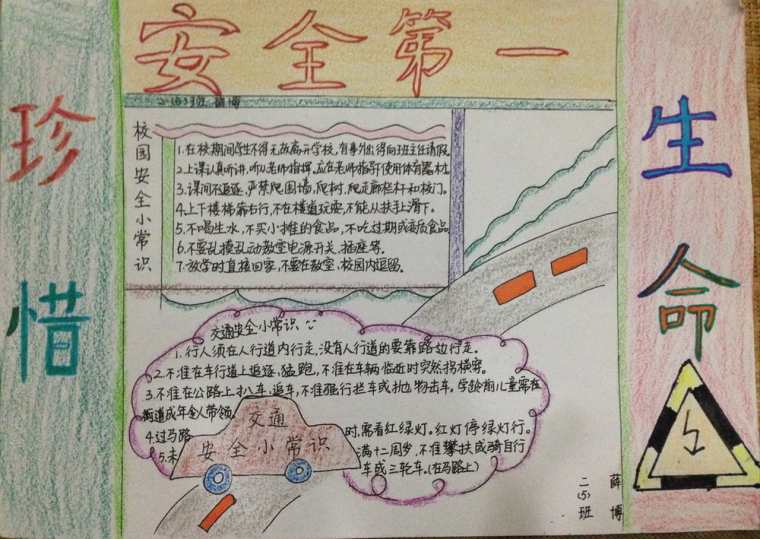 安全第一
珍惜
生命
二(5)班 薛博
校园安全小常识
1.在校期间学生不得无故离开学校,有事外出得向班主任请假
2.上课认真听讲,听从老师指挥,应在老师指导使用体育器材.
3.课间不追逐,严禁爬围墙,爬树,爬走廊栏杆和校门.
4.上下楼梯靠右行,不在楼道玩耍,不能从扶手上滑下.
5.不喝生水,不买小摊的食品,不吃过期或变质食品
6.不要乱摸乱动教室电源开关,插座等.
7.放学时直接回家,不要在教室,校园内逗留.
交通安全小常识
1.行人须在人行道内行走,没有人行道的要靠路边行走.
2.不准在车行道上追逐,猛跑,不准在车辆临近时突然拐横穿.
3.不准在公路上扒车,追车,不准强行拦车或抛物击车.学龄前儿童需在
街道成年人带领
4.过马路 时,需看红绿灯.红灯停绿灯行.
5.未 满十二周岁,不准攀扶或骑自行
车或三轮车.(在马路上)
交通
安全小常识
二(5)班
薛博